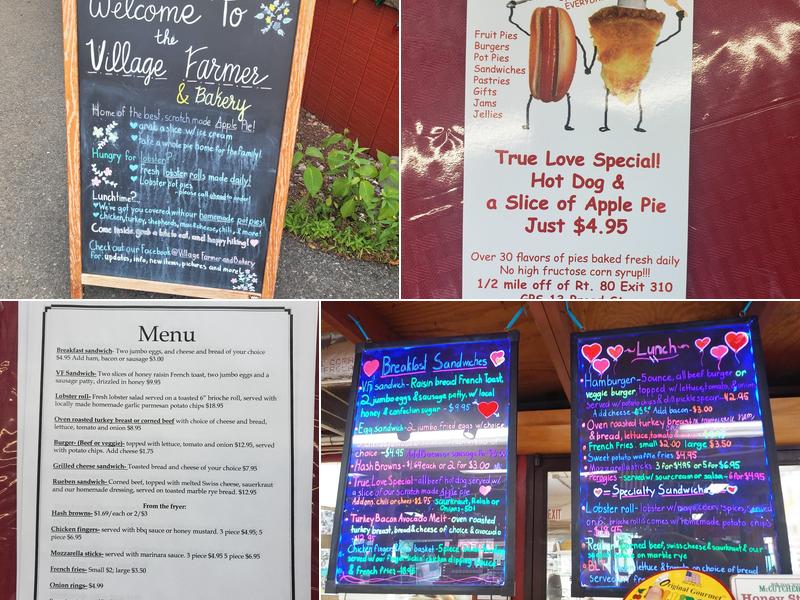 Welcome To
the
Village Farmer
& Bakery
Home of the best, scratch made Apple Pie!
grab a slice w/ ice cream
take a whole pie home for the family!
Hungry for lobster?
Fresh lobster rolls made daily!
Lobster pot pies
- please call ahead to order!
Lunchtime?..
We've got you covered with our homemade pot pies!
chicken, turkey, shepherds, mac & cheese, chili, & more!
Come inside, grab a bite to eat, and happy hiking!
Check out our Facebook @Village Farmer and Bakery
For updates, info, new items, pictures and more!
Fruit Pies
Burgers
Pot Pies
Sandwiches
Pastries
Gifts
Jams
Jellies
True Love Special!
Hot Dog &
a Slice of Apple Pie
Just $4.95
Over 30 flavors of pies baked fresh daily
No high fructose corn syrup!!!
1/2 mile off of Rt. 80 Exit 310
Menu
Breakfast sandwich- Two jumbo eggs, and cheese and bread of your choice
$4.95 Add ham, bacon or sausage $3.00
VF Sandwich- Two slices of honey raisin French toast, two jumbo eggs and a
sausage patty, drizzled in honey $9.95
Lobster roll- Fresh lobster salad served on a toasted 6" brioche roll, served with
locally made homemade garlic parmesan potato chips $18.95
Oven roasted turkey breast or corned beef with choice of cheese and bread,
lettuce, tomato and onion $8.95
Burger- (Beef or veggie)- topped with lettuce, tomato and onion $12.95, served
with potato chips. Add cheese $1.75
Grilled cheese sandwich- Toasted bread and cheese of your choice $7.95
Rueben sandwich- Corned beef, topped with melted Swiss cheese, sauerkraut
and our homemade dressing, served on toasted marble rye bread. $12.95
From the fryer:
Hash browns- $1.69/each or 2/$3
Chicken fingers- served with bbq sauce or honey mustard. 3 piece $4.95; 5
piece $6.95
Mozzarella sticks- served with marinara sauce. 3 piece $4.95 5 piece $6.95
French fries- Small $2; large $3.50
Onion rings- $4.99
Breakfast Sandwiches
V/F sandwich- Raisin bread French Toast,
2 jumbo eggs & sausage patty, w/ local
honey & confection sugar - $9.95
Egg sandwich- 2 jumbo fried eggs w/ choice
choice - $4.95 Add Bacon or sausage
Hash Browns - $1.69 each or 2 for $3.00
True Love Special- all beef hot dog, served w/
a slice of our scratch made Apple pie
Add on: chili or cheese - $1.95 sauerkraut, Relish or
Onions- 50¢
Turkey Bacon Avocado Melt- oven roasted
turkey breast, bread & cheese of choice & avocado
$12.95
Chicken finger basket- 5 piece
served w/ our chicken dipping sauce
& French fries
Lunch
Hamburger- 5 ounce, all beef burger or
veggie burger, topped w/ lettuce, tomato, & onion
served w/ potato chips & dill pickle spear
Add cheese Add bacon - $3.00
Oven roasted turkey breast
& bread, lettuce, tomato
French Fries- small $2.00 large $3.50
Sweet potato waffle fries $4.95
Mozzarella sticks 3 for $4.95 or 5 for $6.95
Perogies - served w/ sour cream or salsa - 6 for $4.95
Specialty Sandwiches
Lobster roll- lobster w/ mayo, celery, spices, served
on 6" brioche roll & comes w/ homemade potato chips
$18.95
corned beef, swiss cheese & sauerkraut & our
on marble rye
BLT lettuce & tomato on choice of bread
served
EXIT
Original Gourmet
McCUTCHEON'S